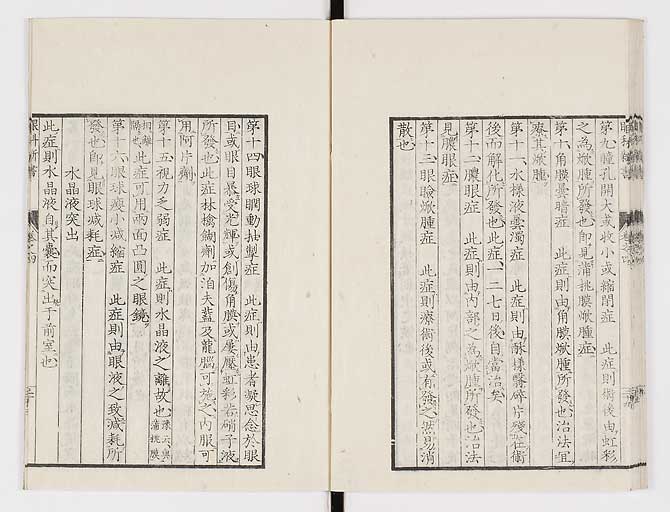 第九瞳孔開大或收小或縮閉症 此症則術後由虹彩
之為焮腫所發也即見葡挑膜焮腫症
第十角膜曇暗症 此症則由角膜焮腫所發也治法宜
療其焮腫
第十一水様液雲濁症 此症則由酥様醫碎片殘在術
後而解化所發也此症一二七日後自當治矣
第十二膿眼症 此症則由内部之為焮腫所發也治法
見膿眼症
第十三眼瞼焮腫症 此症則療術後或有發之然易消
散也
第十四眼球瞤動抽掣症 此症則由患者凝思念於眼
目或眼目暴受光輝或創傷角膜或屢壓虹彩若硝子液
所發也此症林檎糊劑加泊夫藍及龍腦可施之内服可
用阿片劑
第十五視力乏弱症 此症則水晶液之離故也
此症可用兩面凸圓之眼鏡
第十六眼球瘦小減縮症 此症則由眼液之致減耗所
發也即見眼球減耗症
水晶液突出
此症則水晶液自其囊而突出于前室也